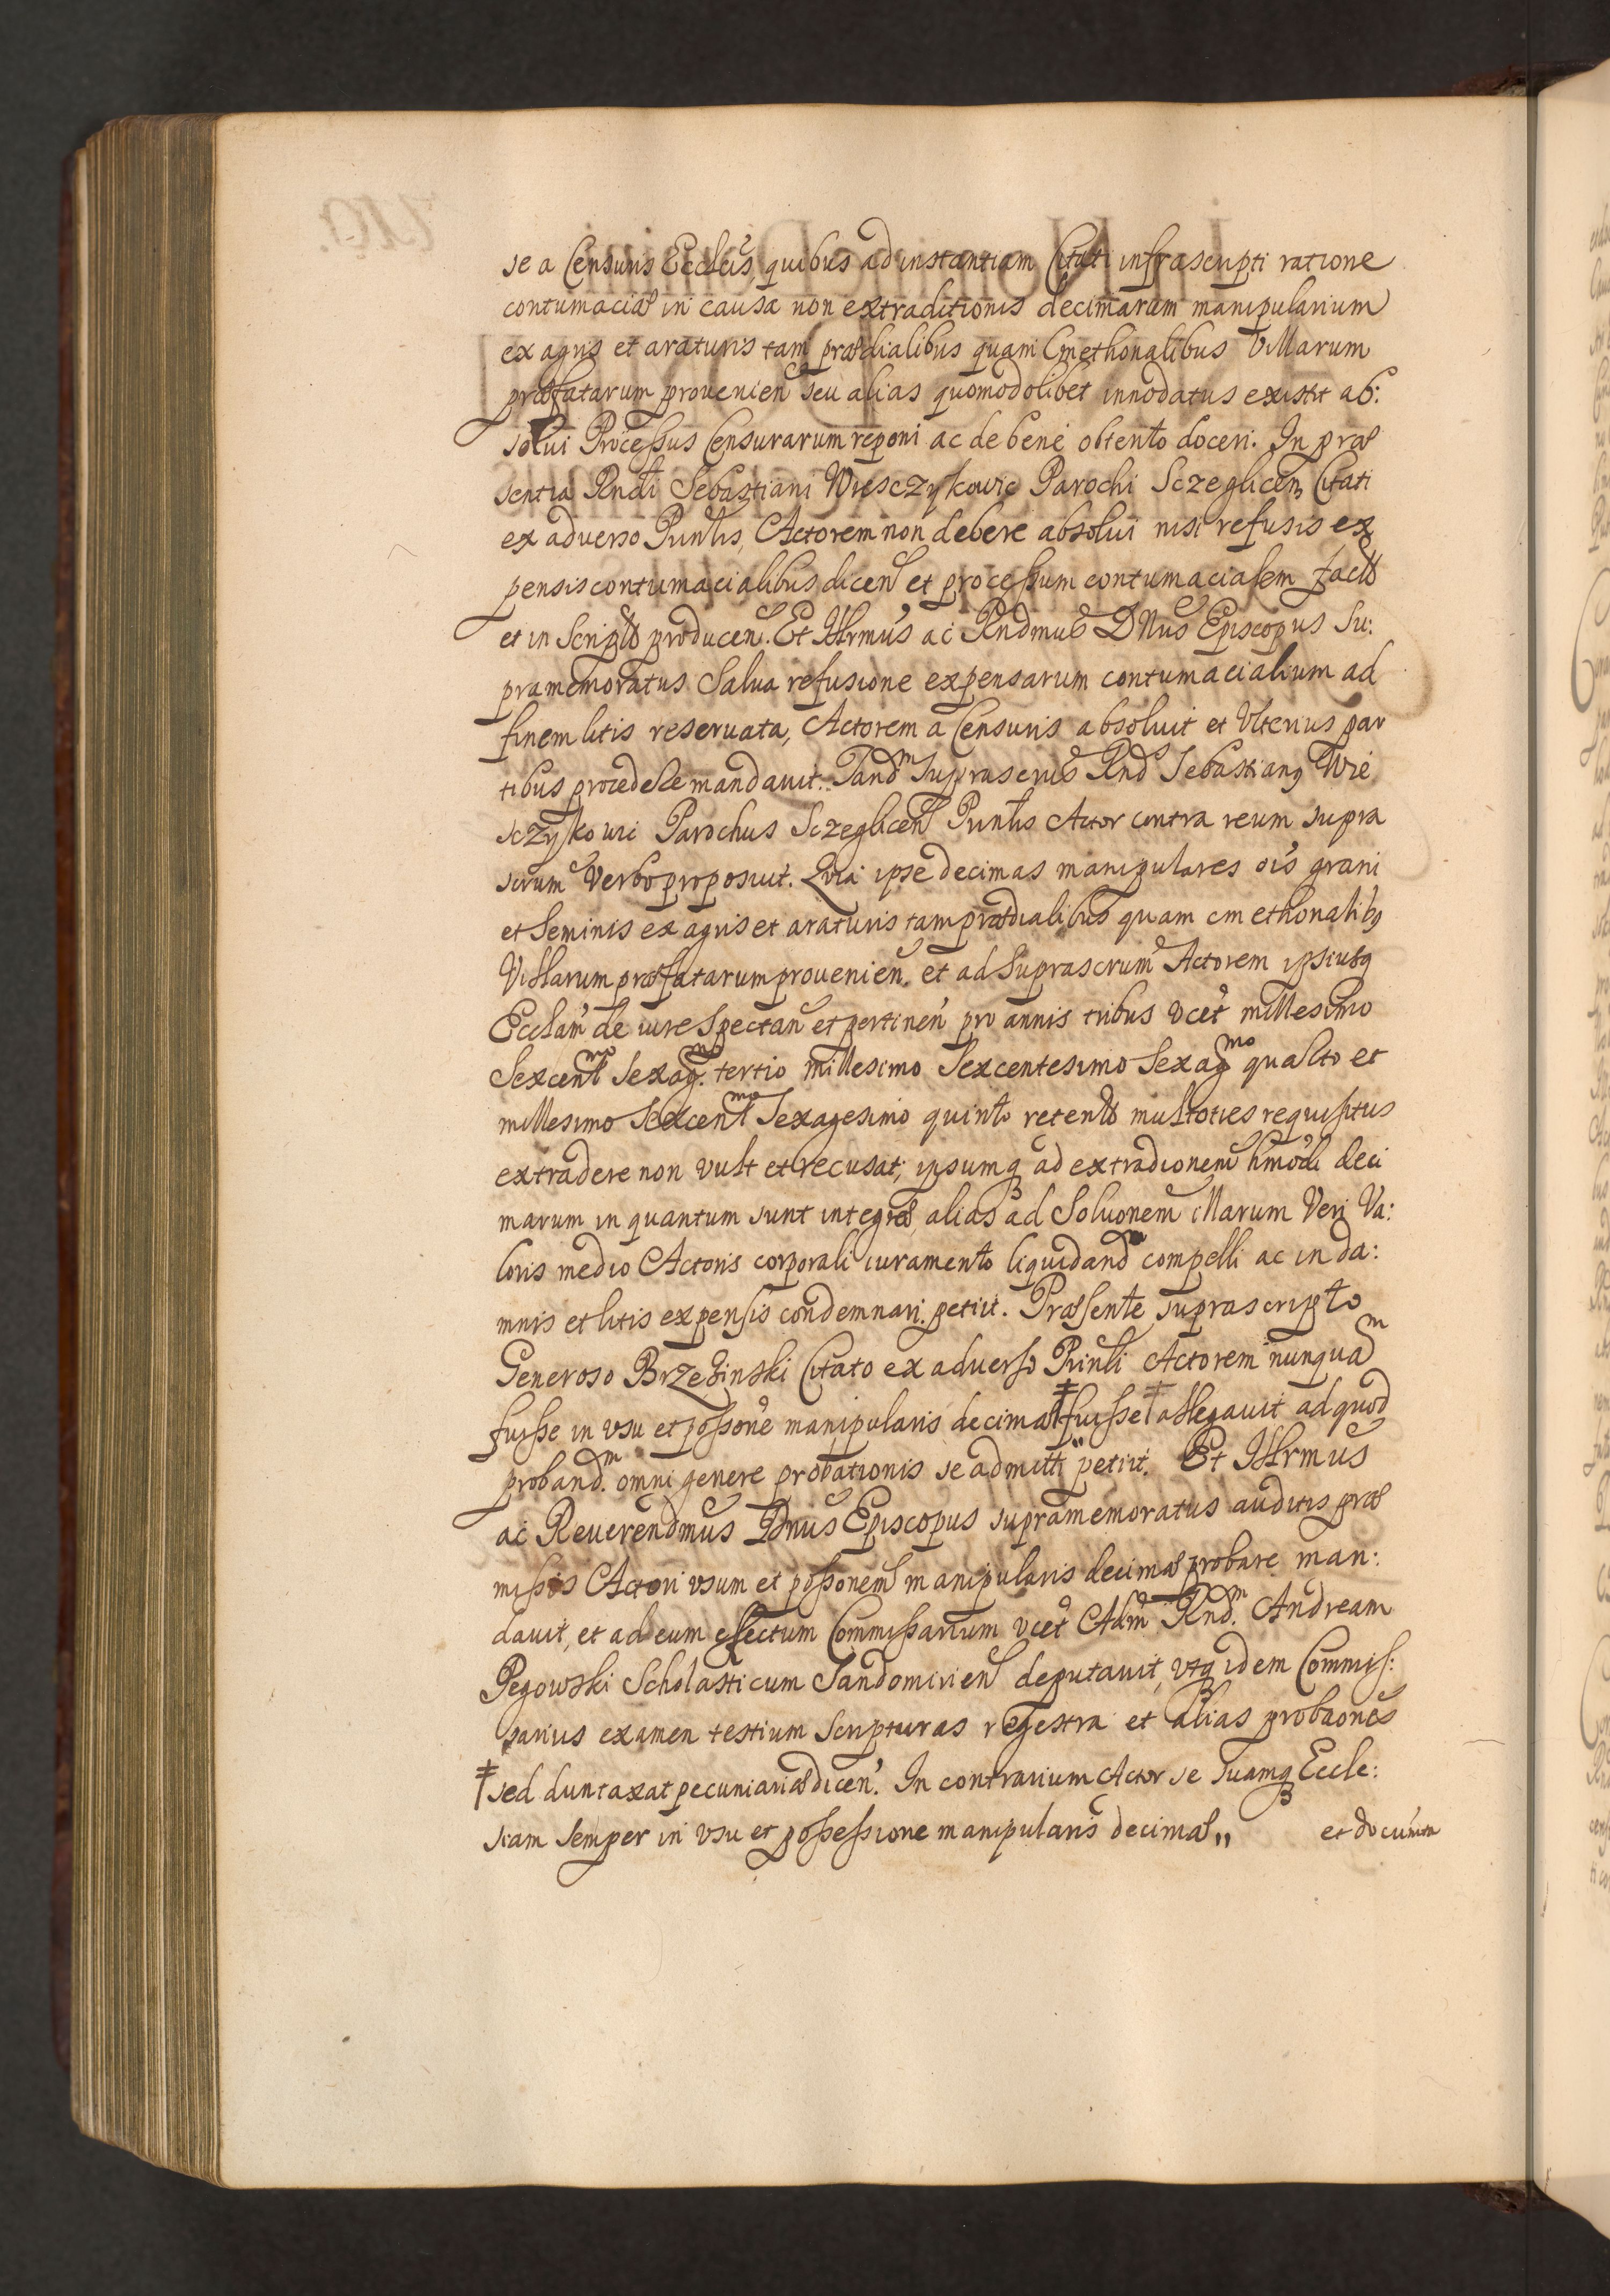 se a Censuris Ecclcis, quibus ad instantiam Citati infrascripti ratione
contumaciæ in causa non extraditionis decimarum manipularium
ex agris et araturis tam prædialibus quam Cmethonalibus Villarum
præfatarum prouenien seu alias quomodolibet innodatus existit ab:
solui Processus Censurarum reponi ac de bene obtento doceri. In præ
sentia Rndi Sebastiani Wiesczyskowic Parochi Sczeglicen Citati
ex aduerso Pnntis, Actorem non debere absolui nisi refusis ex
pensis contumacialibus dicen et processum contumacialem facto
et in Scripto producen. Et Illrmus ac Rndmus DNus Episcopus Su:
pramemoratus Salua refusione expensarum contumacialium ad
finem litis reseruata, Actorem a Censuris absoluit et Vlterius par
tibus procedere mandauit. Tandm suprascrus Rnd Sebastianq Wie
sczysko wic Parochus Sczeglicen Pnntis Actor contra reum supra
scrum Verbo proposuit. Quia ipse decimas manipulares ois grani
et Seminis ex agris et araturis tam prædialibus quam cmethonalibq
Villarum præfatarum prouenien. et ad Suprascrum Actorem ipsiusq
Ecclam de iure Spectan et pertinen pro annis tribus vcet millesimo
Sexcentmo Sexagmo. tertio millesimo Sexcentesimo Sexagmo quarto et
millesimo Sexcentmo Sexagesimo quinto retento multoties requisitus
extradere non vult et recusat, ipsumq ad extradionem hmodi deci
marum in quantum sunt integræ, alias ad Soluonem illarum Veri Va:
loris medio Actoris corporali iuramento liquidand compelli ac in da:
mnis et litis expensis condemnari petiit. Præsente suprascripto
Generoso Brzezinski Citato ex aduerso Pnnti Actorem nunquam
fuisse in vsu et possone manipularis decimæ ‡ fuisse ‡ allegauit ad quod
proband.m omni genere probationis se admitti petiit. Et Illrmus
ac Reuerendmus Dnus Episcopus supramemoratus auditis præ
missis Actori vsum et possonem manipularis decimæ probare man:
dauit, et ad eum effectum Commissarium vcet Adm Rnd.m Andream
Pegowski Scholasticum Sandomirien deputauit, vtq idem Commis:
sarius examen testium Scripturas regestra et alias probaones
‡ sed duntaxat pecuniariæ dicen. In contrarium Actor se Suamq Eccle:
siam semper in vsu et possessione manipularis decimæ,, et documta